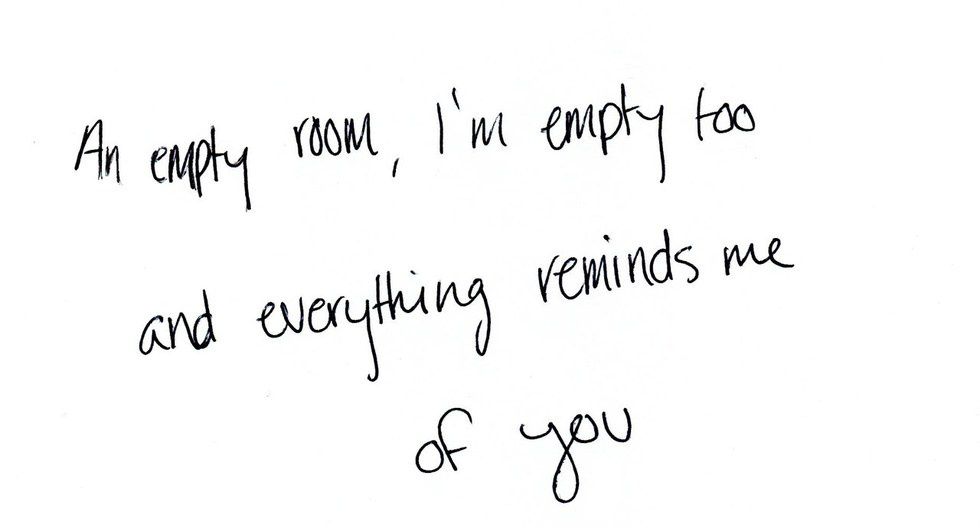 An empty room, I'm empty too
and everything reminds me
of you